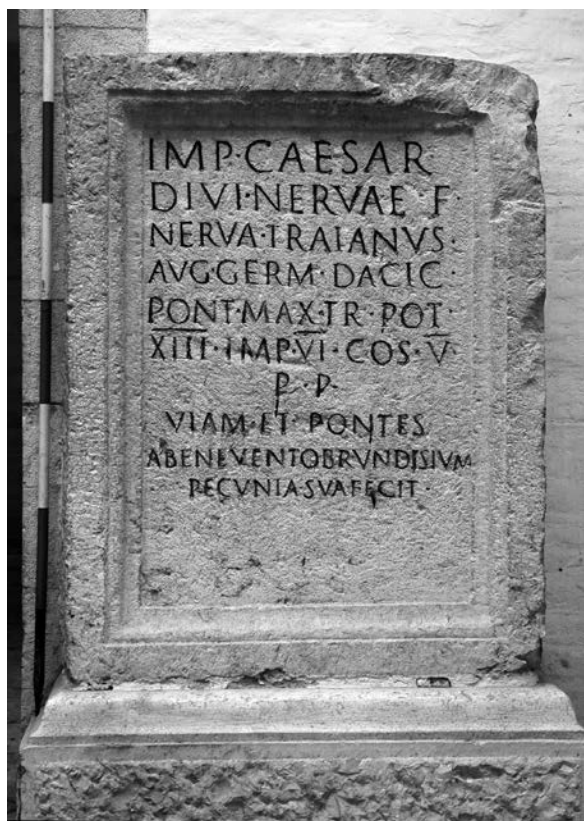 IMP·CAESAR
DIVI·NERVAE·F·
NERVA·TRAIANVS·
AVG·GERM·DACIC·
PONT·MAX·TR·POT·
XIII·IMP·VI·COS·V·
P·P·
VIAM·ET·PONTES
ABENEVENTOBRVNDISIVM
PECVNIASVAFECIT·